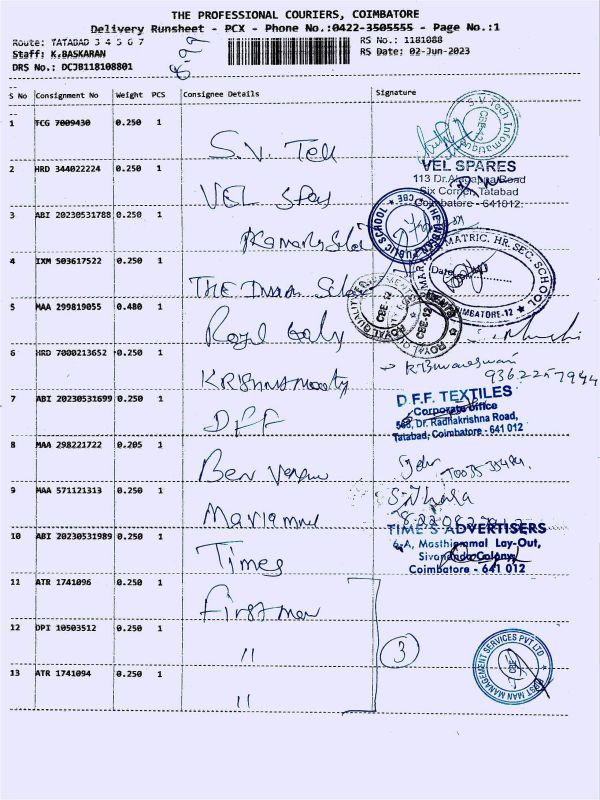 THE PROFESSIONAL COURIERS, COIMBATORE
Delivery Runsheet - PCX - Phone No.:0422-3505555 - Page No.:1
Route: TATABAD 3 4 5 6 7
RS No.: 1181088
Staff: K.BASKARAN
RS Date: 02-Jun-2023
DRS No.: DCJB118108801
S No Consignment No Weight PCS Consignee Details Signature
1 TCG 7009430 0.250 1
S.V. Tech Informatique
CBE-12
S.V. Tell
2 HRD 344022224 0.250 1
VEL SPARES
113 Dr.Alagappa Road
Six Corner, Tatabad
Coimbatore - 641012.
VEL
3 ABI 20230531788 0.250 1
THE INDIAN PUBLIC SCHOOL * CBE *
MATRIC. HR. SEC. SCHOOL
Date
COIMBATORE-12
4 IXM 503617522 0.250 1
THE
5 MAA 299819055 0.480 1
ROYAL QUALITY
CBE-12
Royal
6 HRD 7000213652 0.250 1
KRISHNAMOORTY
R Bhuvaneswari
9362257944
7 ABI 20230531699 0.250 1
DFF
D.F.F. TEXTILES
Corporate office
568, Dr. Radhakrishna Road,
Tatabad, Coimbatore - 641 012
8 MAA 298221722 0.205 1
Ben
9 MAA 571121313 0.250 1
10 ABI 20230531989 0.250 1
Times
TIME'S ADVERTISERS
6-A, Masthiammal Lay-Out,
Sivananda Colony,
Coimbatore - 641 012
11 ATR 1741096 0.250 1
First man
12 DPI 10503512 0.250 1
"
3
13 ATR 1741094 0.250 1
"
FIRST MAN MANAGEMENT SERVICES PVT LTD
CBE